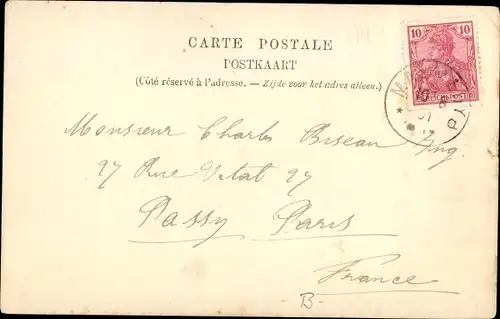 CARTE POSTALE
POSTKAART
(Côté réservé à l'adresse. — Zijde voor het adres alleen.)
10 10
REICHSPOST
Monsieur Charles Ing.
27 Rue Vital 27
Passy Paris
France
B-